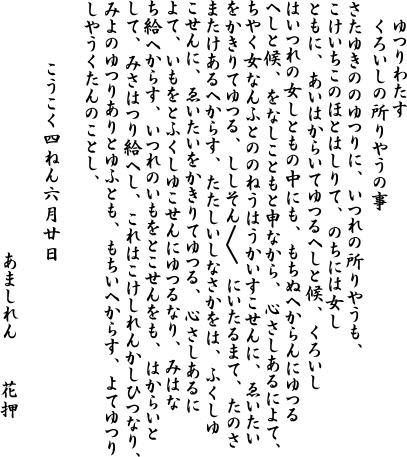 ゆつりわたす
くろいしの所りやうの事
さたゆきののゆつりに、いつれの所りやうも、
こけいちこのほとはしりて、のちには女し
ともに、あいはからいてゆつるへしと候、くろいし
はいつれの女しともの中にも、もちぬへからんにゆつる
へしと候、をなしこともと申なから、心さしあるによて、
ちやく女なんふとののねうはうかいすこせんに、ゑいたい
をかきりてゆつる、ししそん〱にいたるまて、たのさ
またけあるへからす、たたしいしなさかをは、ふくしゆ
こせんに、ゑいたいをかきりてゆつる、心さしあるに
よて、いもをとふくしゆこせんにゆつるなり、みはな
ち給へからす、いつれのいもをとこせんをも、はからいと
して、みさはつり給へし、これはこけしれんかしひつなり、
みよのゆつりありとゆふとも、もちいへからす、よてゆつり
しやうくたんのことし、
こうこく四ねん六月廿日
あましれん 花押